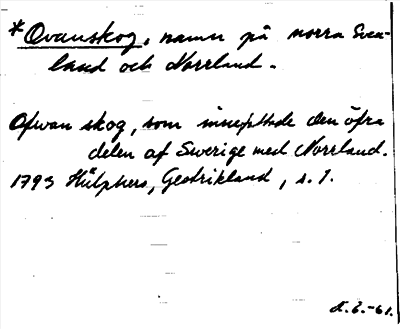 *Ovanskog, namn på norra Svea-
land och Norrland.
Ofwan skog, som innefattade den öfra
delen af Swerige med Norrland.
1793 Hülphers, Gestrikland, s. 1.